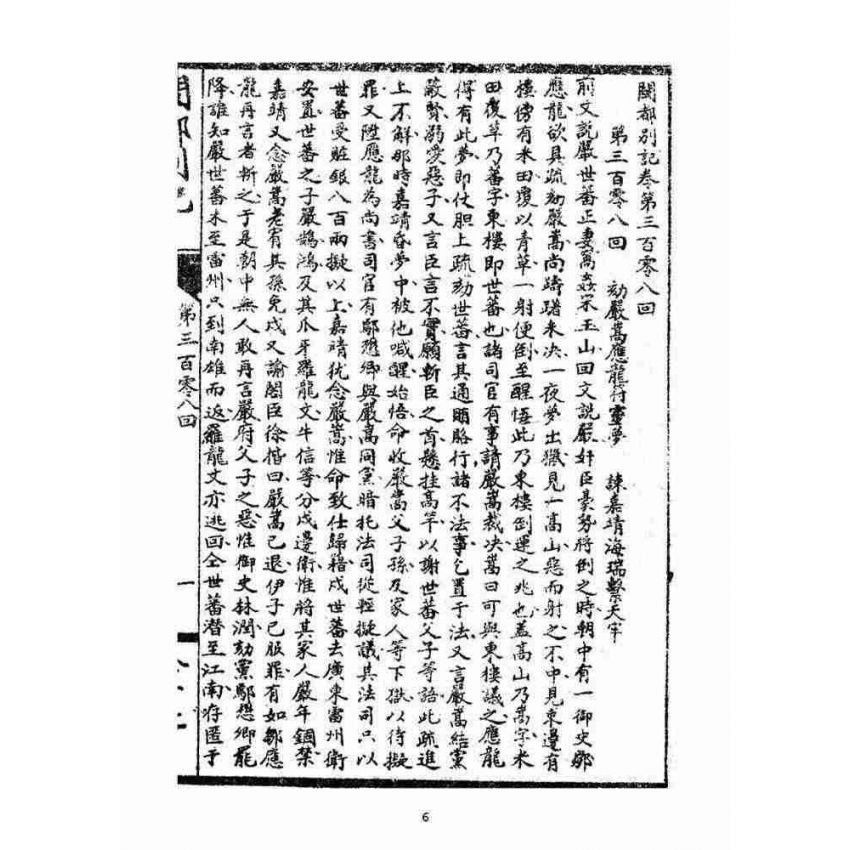 閩都別記卷第三百零八回
第三百零八回　劾嚴嵩應龍符靈夢　諫嘉靖海瑞繫天牢
前文說嚴世蕃正妻萬姦宋玉山回文說嚴奸臣豪勢將倒之時朝中有一御史鄒
應龍欲具疏劾嚴嵩尚躊躇未決一夜夢出獵見一高山惡而射之不中見東邊有
樓傍有米田覆以青草一射便倒至醒悟此乃東樓倒運之兆也蓋高山乃嵩字米
田覆草乃蕃字東樓即世蕃也諸司官有事請嚴嵩裁决嵩曰可與東樓議之應龍
得有此夢即仗胆上疏劾世蕃言其通賄賂行諸不法事乞置于法又言嚴嵩結黨
蔽賢溺愛惡子又言臣言不實願斬臣之首懸挂高竿以謝世蕃父子等語此疏進
上不觧那時嘉靖昏夢中被他喊醒始悟命收嚴嵩父子孫及家人等下獄以待擬
罪又陞應龍為尚書司官有鄢懋卿與嚴嵩同黨暗托法司從輕擬議其法司只以
世蕃受賍銀八百兩擬以上嘉靖犹念嚴嵩惟命致仕歸籍戍世蕃去廣東雷州衛
安置世蕃之子嚴鵠鴻及其爪牙羅龍文牛信等分戍邊衛惟將其家人嚴年錮禁
嘉靖又念嚴嵩老宥其孫免戍又諭閣臣徐揩曰嚴嵩已退伊子已服罪有如鄒應
龍再言者斬之于是朝中無人敢再言嚴府父子之惡惟御史林潤劾黨鄢懋卿罷
降誰知嚴世蕃未至雷州只到南雄而返羅龍文亦逃回仝世蕃潛至江南存匿于
第三百零八回
一
6